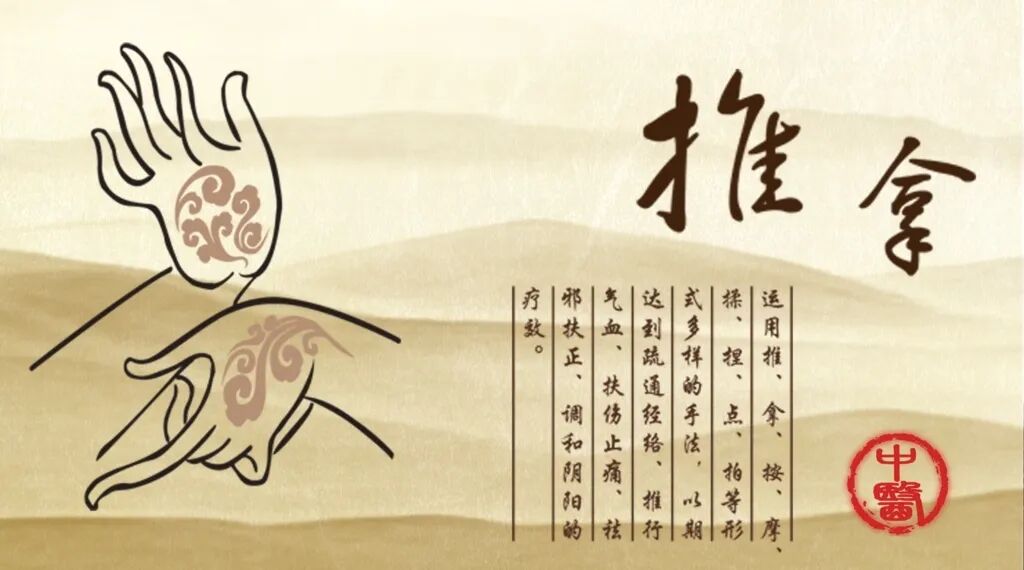 推拿
运用推、拿、按、摩、
揉、捏、点、拍等形
式多样的手法，以期
达到疏通经络、推行
气血、扶伤止痛、祛
邪扶正、调和阴阳的
疗效。
中醫